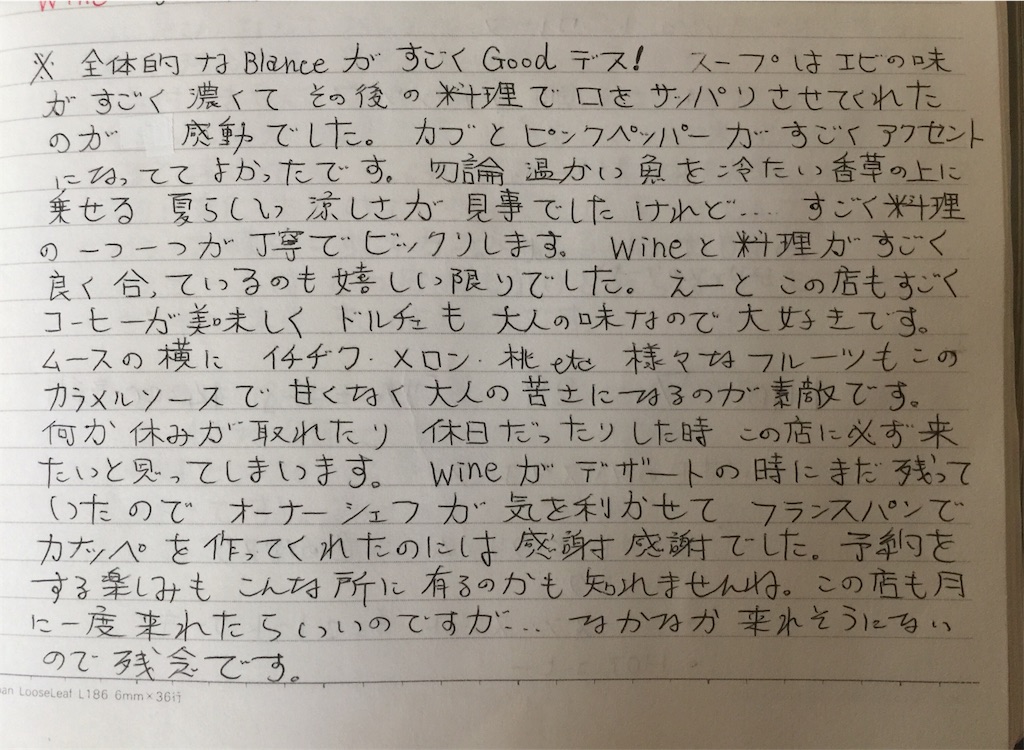 Wine
※ 全体的 な Blance が すごく Good デス! スープは エビの味
が すごく 濃くて その後 の 料理で 口を サッパリ させてくれた
のが 感動 でした。 カブ と ピンクペッパー が すごく アクセント
になってて よかったです。 勿論 温かい 魚 を 冷たい 香草の上に
乗せる 夏らしい 涼しさが 見事でした けれど.... すごく 料理
の 一つ一つが 丁寧で ビックリします。 Wine と 料理が すごく
良く 合っているのも 嬉しい限りでした。 えーと この店も すごく
コーヒーが 美味しく ドルチェ も 大人の 味なので 大好きです。
ムースの 横に イチヂク・メロン・桃 etc 様々な フルーツも この
カラメルソースで 甘くなく 大人の 苦さになるのが 素敵です。
何か 休みが 取れたり 休日だったり した時 この店に必ず 来
たいと 思ってしまいます。 Wine が デザートの 時に まだ 残って
いたので オーナーシェフ が 気を利かせて フランスパンで
カナッペ を 作ってくれたのには 感謝 感謝でした。 予約を
する 楽しみも こんな 所に 有るのかも 知れませんね。 この店も 月
に 一度 来れたら いいのですが... なかなか 来れそうにない
ので 残念です。
an LooseLeaf L186 6mm×36行